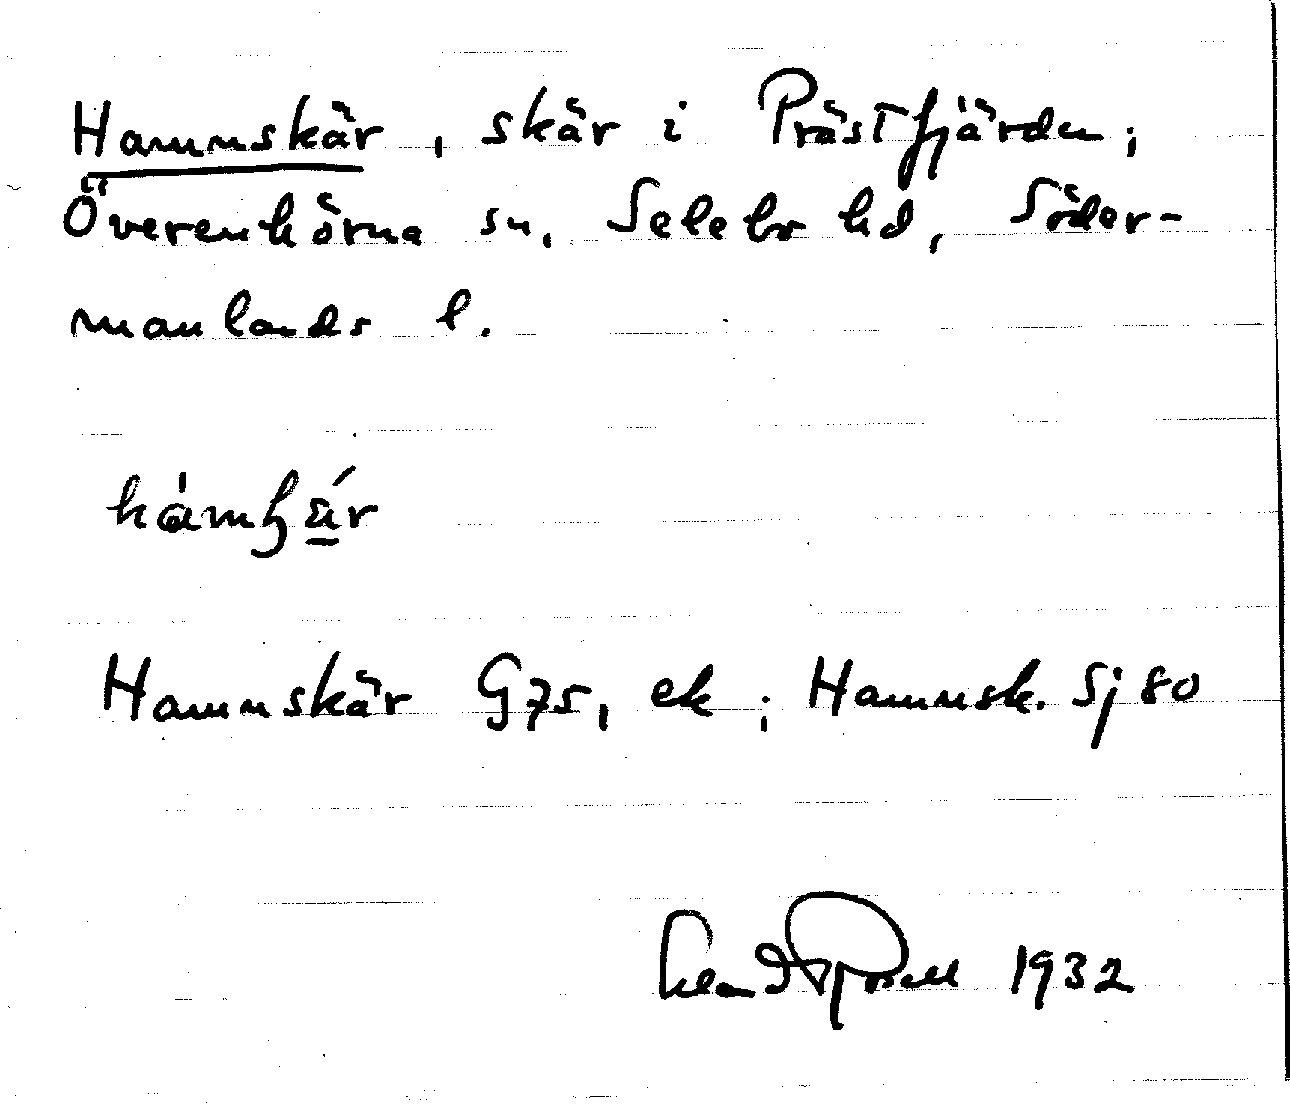 Hamnskär, skär i Prästfjärden;
Överenhörna sn, Selebo hd, Söder-
manlands l.
Hamnskär G75, ek; Hamnsk. Sj 80
1932